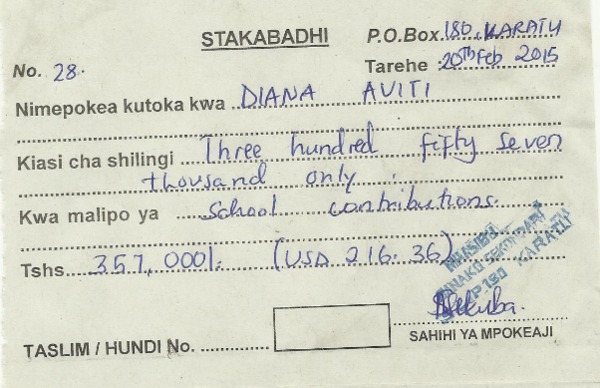 STAKABADHI P.O.Box 180, KARATU
No. 28. Tarehe 20th Feb 2015
Nimepokea kutoka kwa DIANA AVITI
Kiasi cha shilingi Three hundred fifty seven
thousand only.
Kwa malipo ya School contributions.
Tshs 357,000/. (USD 216.36)
SLP 180 KARATU
TASLIM / HUNDI No.
SAHIHI YA MPOKEAJI